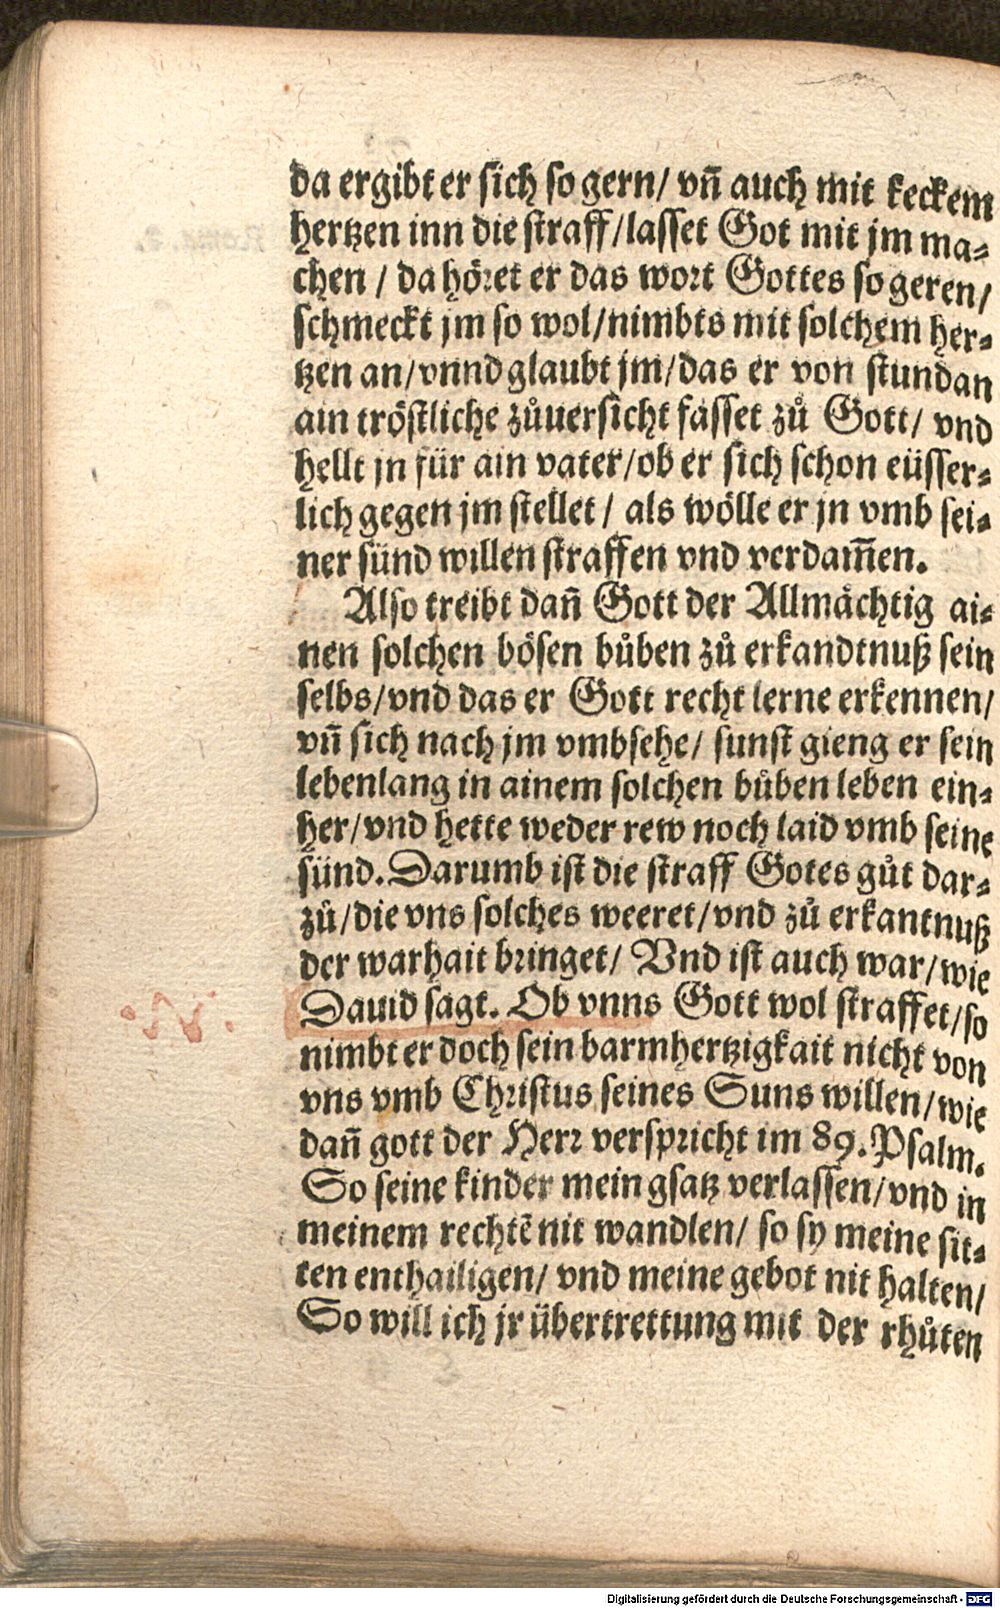 da ergibt er sich so gern/ vñ auch mit keckem
hertzen inn die straff/lasset Got mit jm ma⸗
chen / da höret er das wort Gottes so geren/
schmeckt jm so wol/nimbts mit solchem her⸗
tzen an/vnnd glaubt jm/das er von stundan
ain tröstliche zůuersicht fasset zů Gott/ vnd
hellt jn für ain vater/ob er sich schon eüsser⸗
lich gegen jm stellet / als wölle er jn vmb sei⸗
ner sünd willen straffen vnd verdam̃en.
Also treibt dañ Gott der Allmächtig ai⸗
nen solchen bösen bůben zů erkandtnuß sein
selbs/vnd das er Gott recht lerne erkennen/
vñ sich nach jm vmbsehe/ sunst gieng er sein
lebenlang in ainem solchen bůben leben ein⸗
her/vnd hette weder rew noch laid vmb seine
sünd. Darumb ist die straff Gotes gůt dar⸗
zů/die vns solches weeret/vnd zů erkantnuß
der warhait bringet/ Vnd ist auch war/wie
Dauid sagt. Ob vnns Gott wol straffet/so
nimbt er doch sein barmhertzigkait nicht von
vns vmb Christus seines Suns willen/wie
dañ gott der Herr verspricht im 89. Psalm.
So seine kinder mein gsatz verlassen/vnd in
meinem rechtẽ nit wandlen/ so sy meine sit⸗
ten enthailigen/ vnd meine gebot nit halten/
So will ich jr übertrettung mit der rhůten
Digitalisierung gefördert durch die Deutsche Forschungsgemeinschaft - DFG